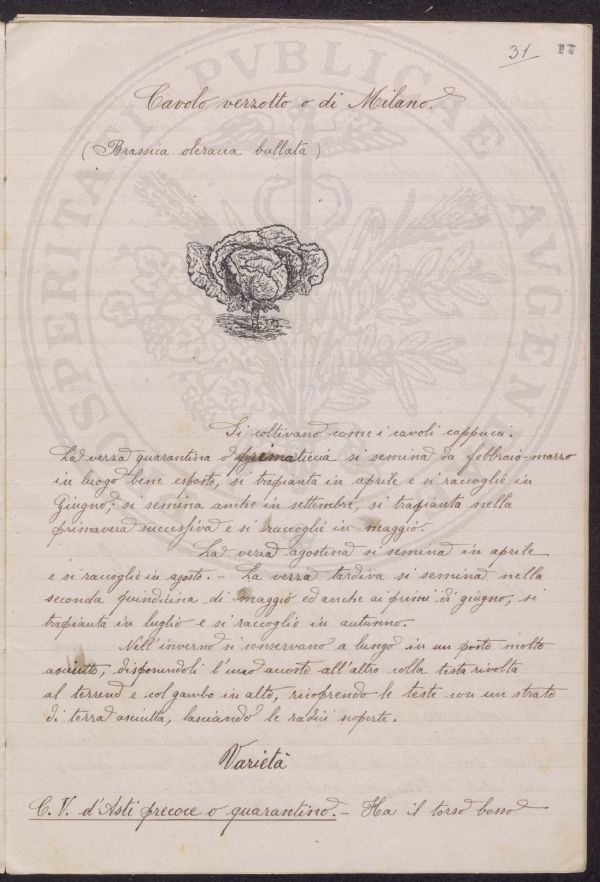 31 17
Cavolo verzotto o di Milano.
(Brassica oleracea bullata)
Si coltivano come i cavoli cappucci.
La verza quarantina o primaticcia si semina da febbraio-marzo
in luogo bene esposto, si trapianta in aprile e si raccoglie in
Giugno; si semina anche in settembre, si trapianta nella
primavera successiva e si raccoglie in maggio.
La verza agostina si semina in aprile
e si raccoglie in agosto. - La verza tardiva si semina nella
seconda quindicina di maggio ed anche ai primi di giugno, si
trapianta in luglio e si raccoglie in autunno.
Nell'inverno si conservano a lungo in un posto molto
asciutto, disponendoli l'uno accosto all'altro colla testa rivolta
al terreno e col gambo in alto, ricoprendo le teste con un strato
di terra asciutta, lasciando le radici scoperte.
Varietà
C. V. d'Asti precoce o quarantino. - Ha il torso basso